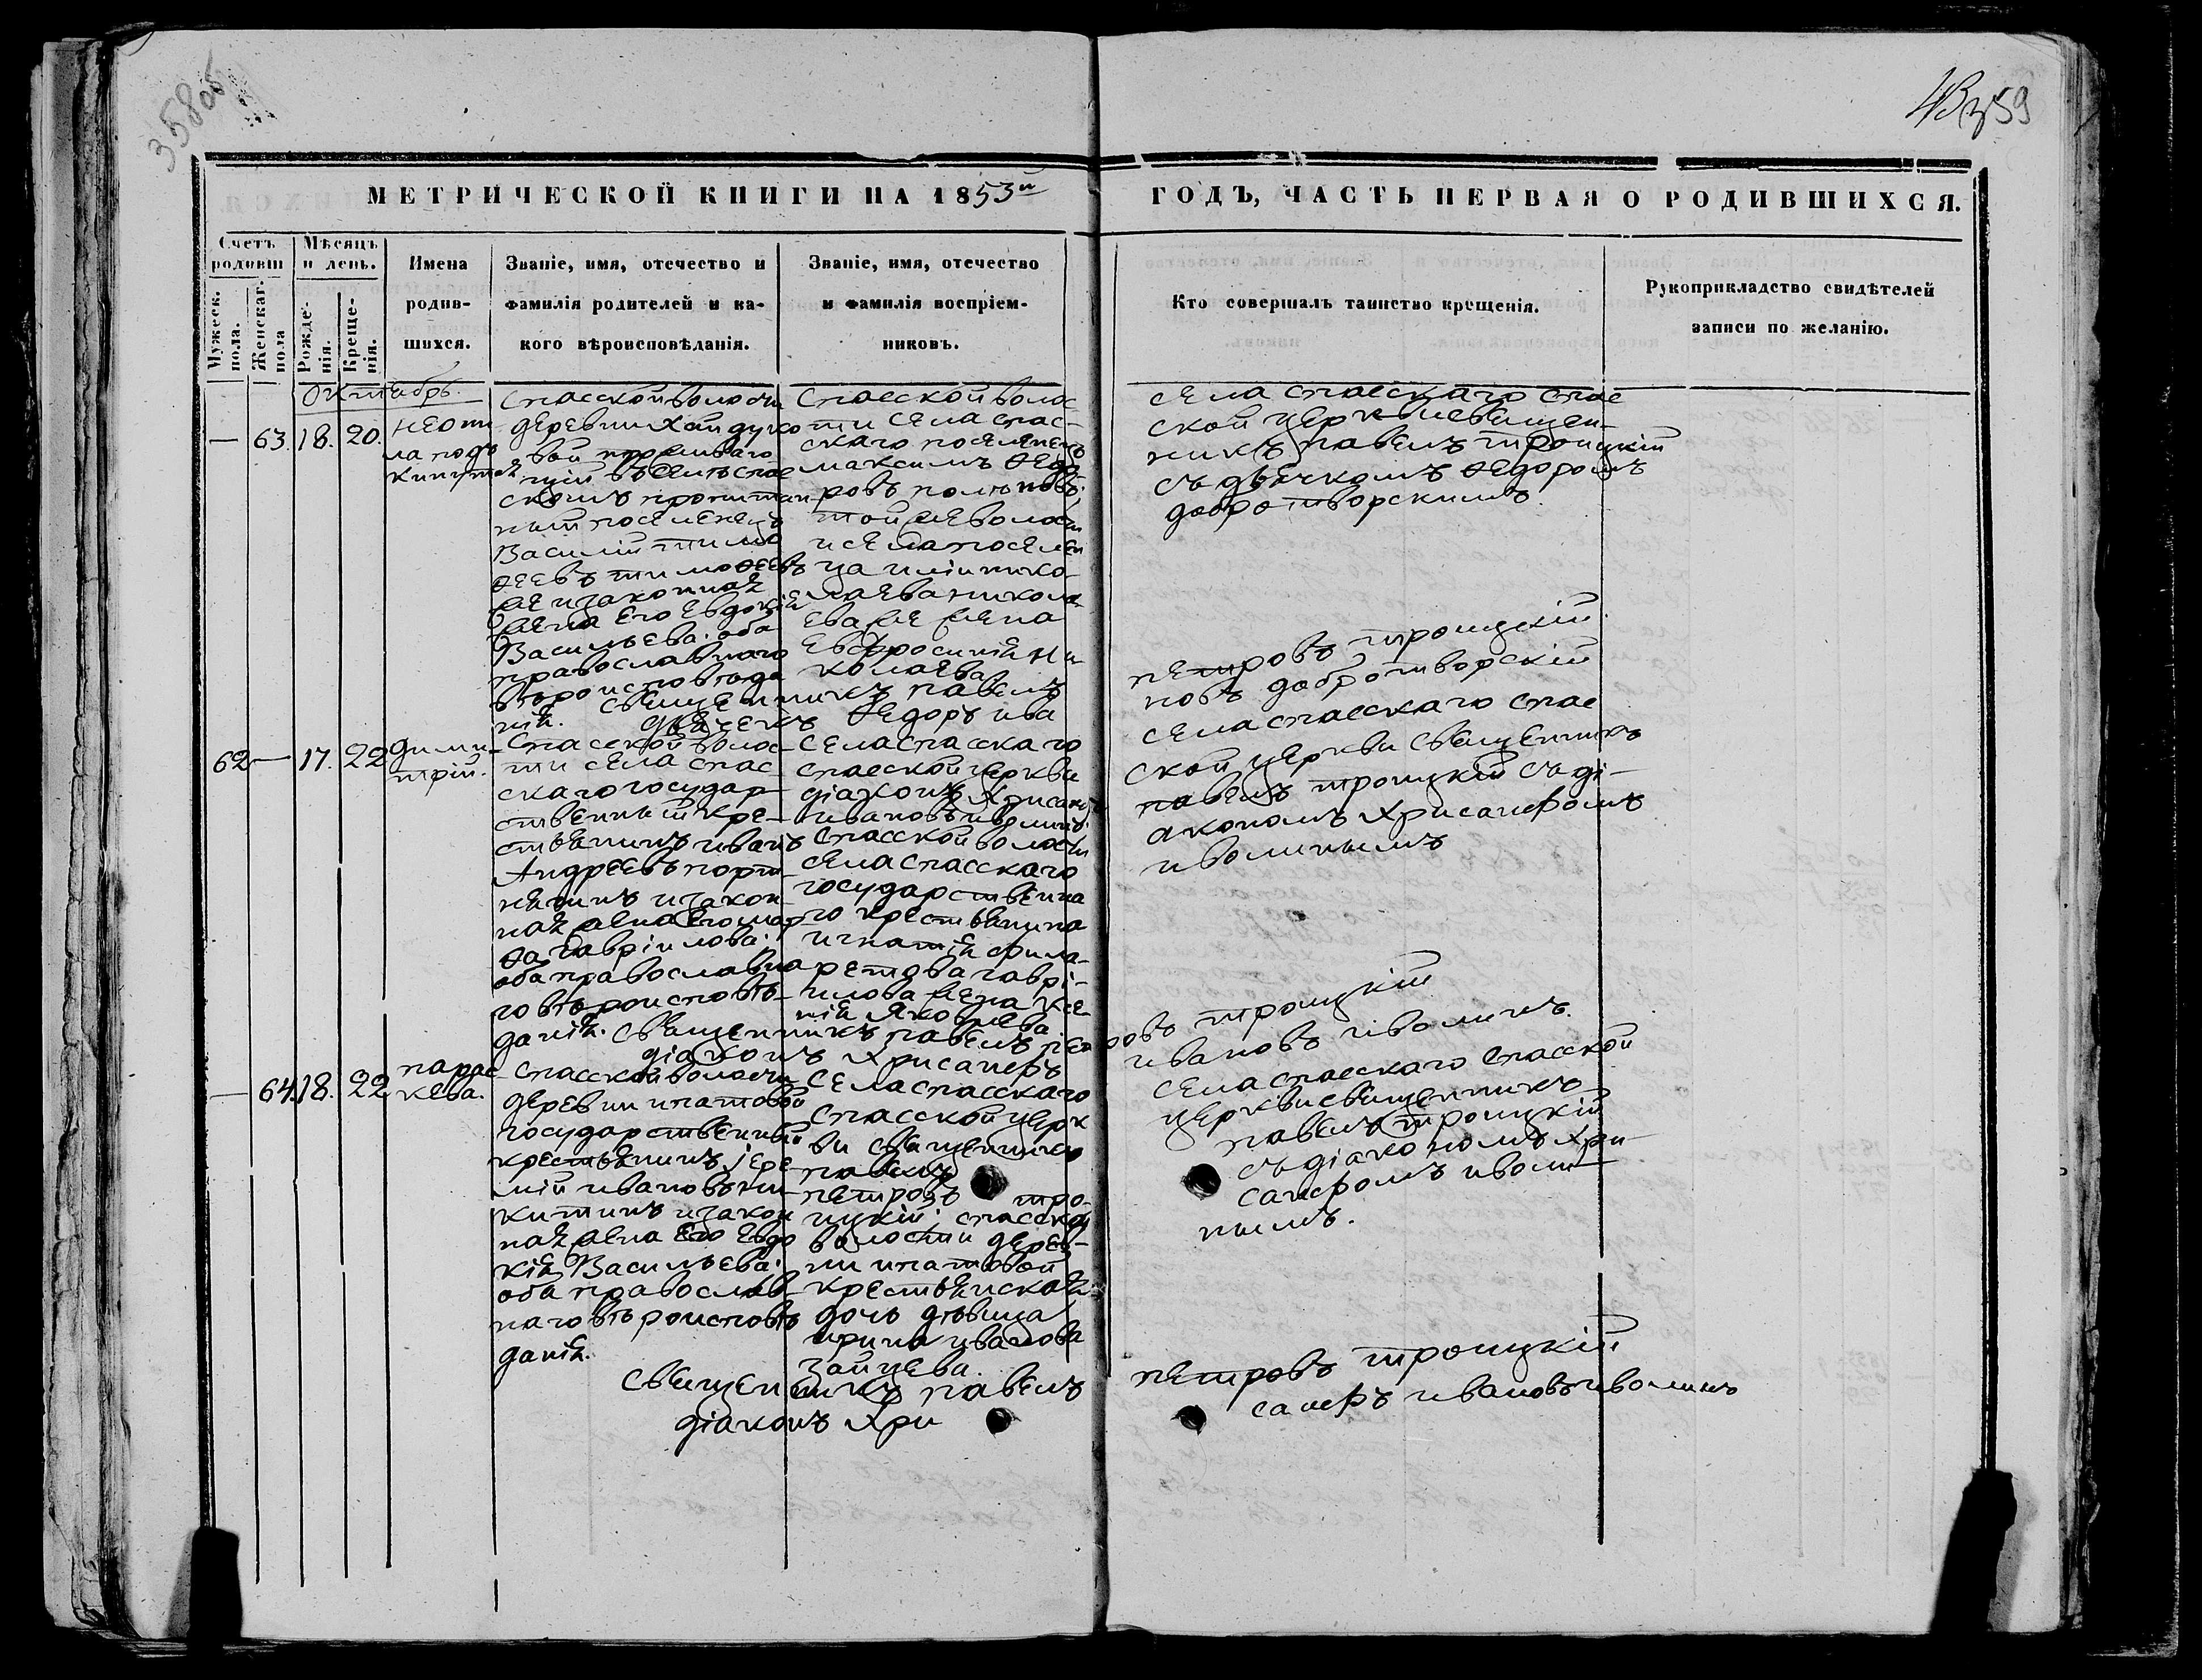 358об
359
МЕТРИЧЕСКОЙ КНИГИ НА 1853й ГОДЪ, ЧАСТЬ ПЕРВАЯ О РОДИВШИХСЯ.
Счетъ родивш
Мужеск. пола.
Женскаг. пола
Мѣсяцъ и день.
Рожде-
нія.
Креще-
нія.
Имена
родив-
шихся.
Званіе, имя, отечество и
фамилія родителей и ка-
кого вѣроисповѣданія.
Званіе, имя, отечество
и фамилія воспріем-
никовъ.
Кто совершалъ таинство крещенія.
Рукоприкладство свидѣтелей
записи по желанію.
октябрь.
— 63. 18. 20.
неони
ла
спасской волости
деревни хайдуко
вой
щій въ селѣ спас
скомъ пропитан
ный поселенецъ
Василій тимо
ѳеевъ тимоѳеевъ
же и законная
жена его Евдокія
Васильева. оба
православнаго
вѣроисповѣда
нія.
спасской волос
ти села спас-
скаго поселенец
максимъ ѳедо
ровъ
той же волости
и села поселен
ца илiи нико-
лаева никола
ева же жена
Евфросинія ни
колаева
села спасскаго спас
ской церкви священ-
никъ павелъ троицкій
съ дьячкомъ ѳедоромъ
добротворскимъ
священникъ павелъ петровъ троицкій
дьячекъ ѳедоръ ива новъ добротворскій
62 — 17. 22
дими-
трій.
спасской волос-
ти села спас-
скаго государ-
ственный кре-
стьянинъ иванъ
Андреевъ порт-
нягинъ и закон-
ная жена его мар-
ѳа гаврiилова.
оба православна
го вѣроисповѣ-
данія.
села спасскаго
спасской церкви
діаконъ Хрисанфъ
ивановъ иволинъ.
спасской волости
села спасскаго
государственна
го крестьянина
игнатія фила-
ретова гаврі-
илова жена ксе-
нія Яковлева.
села спасскаго спас
ской церкви священникъ
павелъ троицкій съ ді-
акономъ Хрисанфомъ
иволинымъ
священникъ павелъ петровъ троицкій
діаконъ Хрисанфъ ивановъ иволинъ.
— 64. 18. 22
парас
кева.
спасской волости
деревни ипатовой
государственный
крестьянинъ іере
мій ивановъ ни-
китинъ и закон
ная жена его Евдо
кія Васильева.
оба православ-
наго вѣроисповѣ
данія.
села спасскаго
спасской церк
ви священникъ
павелъ
петровъ тро-
ицкій. спасской
волости дерев-
ни ипатовой
крестьянская
дочь дѣвица
ирина иванова
зайцева.
села спасскаго спасской
церкви священникъ
павелъ троицкій
съ діакономъ Хри
санфомъ иволи
нымъ.
священникъ павелъ петровъ троицкій
діаконъ Хри санфъ ивановъ иволинъ